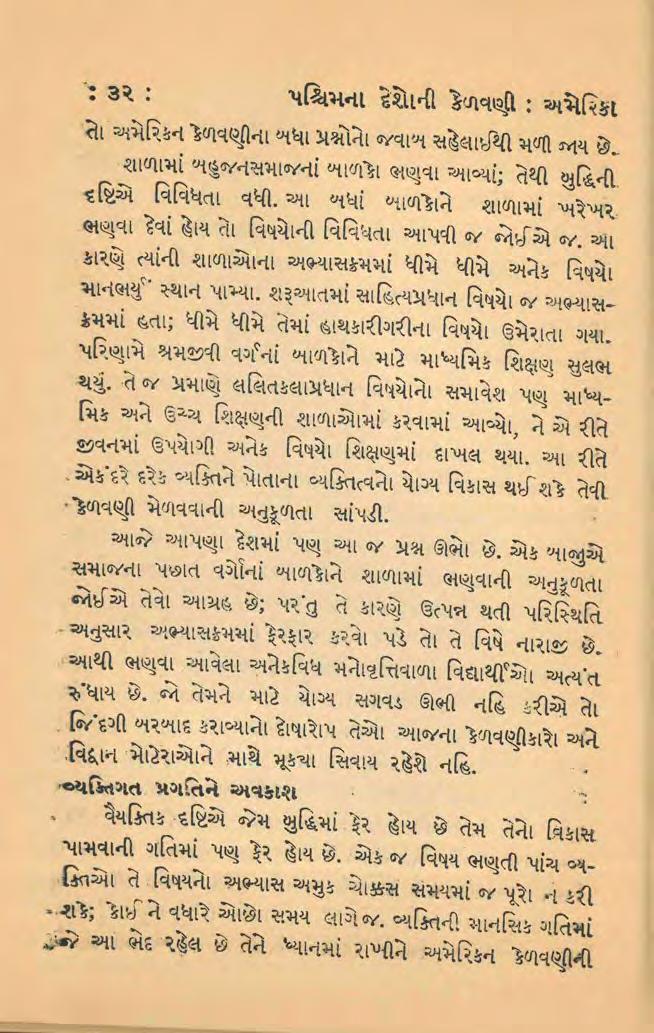 : ૩૨ : પશ્ચિમના દેશોની કેળવણી : અમેરિકા
તો અમેરિકન કેળવણીના બધા પ્રશ્નોનો જવાબ સહેલાઈથી મળી જાય છે.
શાળામાં બહુજનસમાજનાં બાળકો ભણવા આવ્યાં; તેથી બુદ્ધિની
દૃષ્ટિએ વિવિધતા વધી. આ બધાં બાળકોને શાળામાં ખરેખર
ભણવા દેવાં હોય તો વિષયોની વિવિધતા આપવી જ જોઈએ જ. આ
કારણે ત્યાંની શાળાઓના અભ્યાસક્રમમાં ધીમે ધીમે અનેક વિષયો
માનભર્યું સ્થાન પામ્યા. શરૂઆતમાં સાહિત્યપ્રધાન વિષયો જ અભ્યાસ-
ક્રમમાં હતા; ધીમે ધીમે તેમાં હાથકારીગરીના વિષયો ઉમેરાતા ગયા.
પરિણામે શ્રમજીવી વર્ગનાં બાળકોને માટે માધ્યમિક શિક્ષણ સુલભ
થયું. તે જ પ્રમાણે લલિતકલાપ્રધાન વિષયોનો સમાવેશ પણ માધ્ય-
મિક અને ઉચ્ચ શિક્ષણની શાળાઓમાં કરવામાં આવ્યો, ને એ રીતે
જીવનમાં ઉપયોગી અનેક વિષયો શિક્ષણમાં દાખલ થયા. આ રીતે
એકંદરે દરેક વ્યક્તિને પોતાના વ્યક્તિત્વનો યોગ્ય વિકાસ થઈ શકે તેવી
કેળવણી મેળવવાની અનુકૂળતા સાંપડી.
આજે આપણા દેશમાં પણ આ જ પ્રશ્ન ઊભો છે. એક બાજુએ
સમાજના પછાત વર્ગોનાં બાળકોને શાળામાં ભણવાની અનુકૂળતા
જોઈએ તેવો આગ્રહ છે; પરંતુ તે કારણે ઉત્પન્ન થતી પરિસ્થિતિ
અનુસાર અભ્યાસક્રમમાં ફેરફાર કરવો પડે તો તે વિષે નારાજી છે.
આથી ભણવા આવેલા અનેકવિધ મનોવૃત્તિવાળા વિદ્યાર્થીઓ અત્યંત
રુંધાય છે. જો તેમને માટે યોગ્ય સગવડ ઊભી નહિ કરીએ તો
જિંદગી બરબાદ કરાવ્યાનો દોષારોપ તેઓ આજના કેળવણીકારો અને
વિદ્વાન મોટેરાઓને માથે મૂક્યા સિવાય રહેશે નહિ.
વ્યક્તિગત પ્રગતિને અવકાશ
વૈયક્તિક દૃષ્ટિએ જેમ બુદ્ધિમાં ફેર હોય છે તેમ તેનો વિકાસ
પામવાની ગતિમાં પણ ફેર હોય છે. એક જ વિષય ભણતી પાંચ વ્ય-
ક્તિઓ તે વિષયનો અભ્યાસ અમુક ચોક્કસ સમયમાં જ પૂરો ન કરી
શકે; કોઈ ને વધારે ઓછો સમય લાગે જ. વ્યક્તિની માનસિક ગતિમાં
જે આ ભેદ રહેલ છે તેને ધ્યાનમાં રાખીને અમેરિકન કેળવણીની